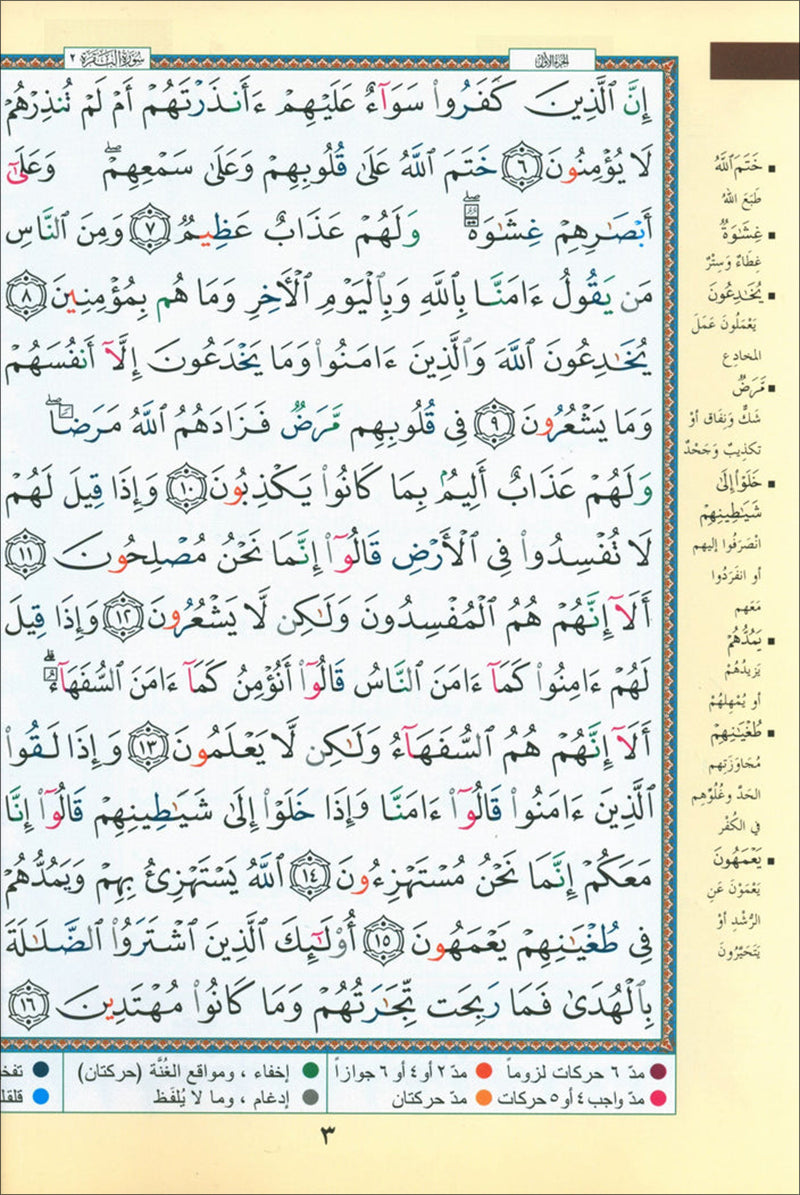 الجزء الأول
سورة البقرة ٢
إِنَّ ٱلَّذِينَ كَفَرُوا۟ سَوَآءٌ عَلَيْهِمْ ءَأَنذَرْتَهُمْ أَمْ لَمْ تُنذِرْهُمْ
لَا يُؤْمِنُونَ ٦ خَتَمَ ٱللَّهُ عَلَىٰ قُلُوبِهِمْ وَعَلَىٰ سَمْعِهِمْ ۖ وَعَلَىٰٓ
أَبْصَٰرِهِمْ غِشَٰوَةٌ ۖ وَلَهُمْ عَذَابٌ عَظِيمٌ ٧ وَمِنَ ٱلنَّاسِ
مَن يَقُولُ ءَامَنَّا بِٱللَّهِ وَبِٱلْيَوْمِ ٱلْأَخِرِ وَمَا هُم بِمُؤْمِنِينَ ٨
يُخَٰدِعُونَ ٱللَّهَ وَٱلَّذِينَ ءَامَنُوا۟ وَمَا يَخْدَعُونَ إِلَّآ أَنفُسَهُمْ
وَمَا يَشْعُرُونَ ٩ فِى قُلُوبِهِم مَّرَضٌ فَزَادَهُمُ ٱللَّهُ مَرَضًا ۖ
وَلَهُمْ عَذَابٌ أَلِيمٌۢ بِمَا كَانُوا۟ يَكْذِبُونَ ١٠ وَإِذَا قِيلَ لَهُمْ
لَا تُفْسِدُوا۟ فِى ٱلْأَرْضِ قَالُوٓا۟ إِنَّمَا نَحْنُ مُصْلِحُونَ ١١
أَلَآ إِنَّهُمْ هُمُ ٱلْمُفْسِدُونَ وَلَٰكِن لَّا يَشْعُرُونَ ١٢ وَإِذَا قِيلَ
لَهُمْ ءَامِنُوا۟ كَمَآ ءَامَنَ ٱلنَّاسُ قَالُوٓا۟ أَنُؤْمِنُ كَمَآ ءَامَنَ ٱلسُّفَهَآءُ ۗ
أَلَآ إِنَّهُمْ هُمُ ٱلسُّفَهَآءُ وَلَٰكِن لَّا يَعْلَمُونَ ١٣ وَإِذَا لَقُوا۟
ٱلَّذِينَ ءَامَنُوا۟ قَالُوٓا۟ ءَامَنَّا وَإِذَا خَلَوْا۟ إِلَىٰ شَيَٰطِينِهِمْ قَالُوٓا۟ إِنَّا
مَعَكُمْ إِنَّمَا نَحْنُ مُسْتَهْزِءُونَ ١٤ ٱللَّهُ يَسْتَهْزِئُ بِهِمْ وَيَمُدُّهُمْ
فِى طُغْيَٰنِهِمْ يَعْمَهُونَ ١٥ أُو۟لَٰٓئِكَ ٱلَّذِينَ ٱشْتَرَوُا۟ ٱلضَّلَٰلَةَ
بِٱلْهُدَىٰ فَمَا رَبِحَت تِّجَٰرَتُهُمْ وَمَا كَانُوا۟ مُهْتَدِينَ ١٦
خَتَمَ ٱللَّهُ
طَبَعَ اللهُ
غِشَٰوَةٌ
غِطَاءٌ وَسِتْرٌ
يُخَٰدِعُونَ
يَعْمَلُونَ عَمَلَ
المخادِع
مَّرَضٌ
شَكٌّ وَنِفَاق أوْ
تكذِيبٌ وَجَحْدٌ
خَلَوْا۟ إِلَىٰ
شَيَٰطِينِهِمْ
انْصَرَفُوا إليهم
أو انفَرَدُوا
مَعَهم
يَمُدُّهُمْ
يَزيدُهُمْ
أو يُمْهِلُهُمْ
طُغْيَٰنِهِمْ
مُجَاوَزَتِهِم
الحَدَّ وَغُلُوِّهِم
في الكُفْرِ
يَعْمَهُونَ
يَعْمَوْنَ عَنِ
الرُّشْدِ أوْ
يَتَحَيَّرُونَ
مدّ ٦ حركات لزوماً مدّ ٢ أو ٤ أو ٦ جوازاً إخفاء ، ومواقع الغُنَّة (حركتان)
مدّ واجب ٤ أو ٥ حركات مدّ حركتان إدغام ، وما لا يُلفَظ
٣